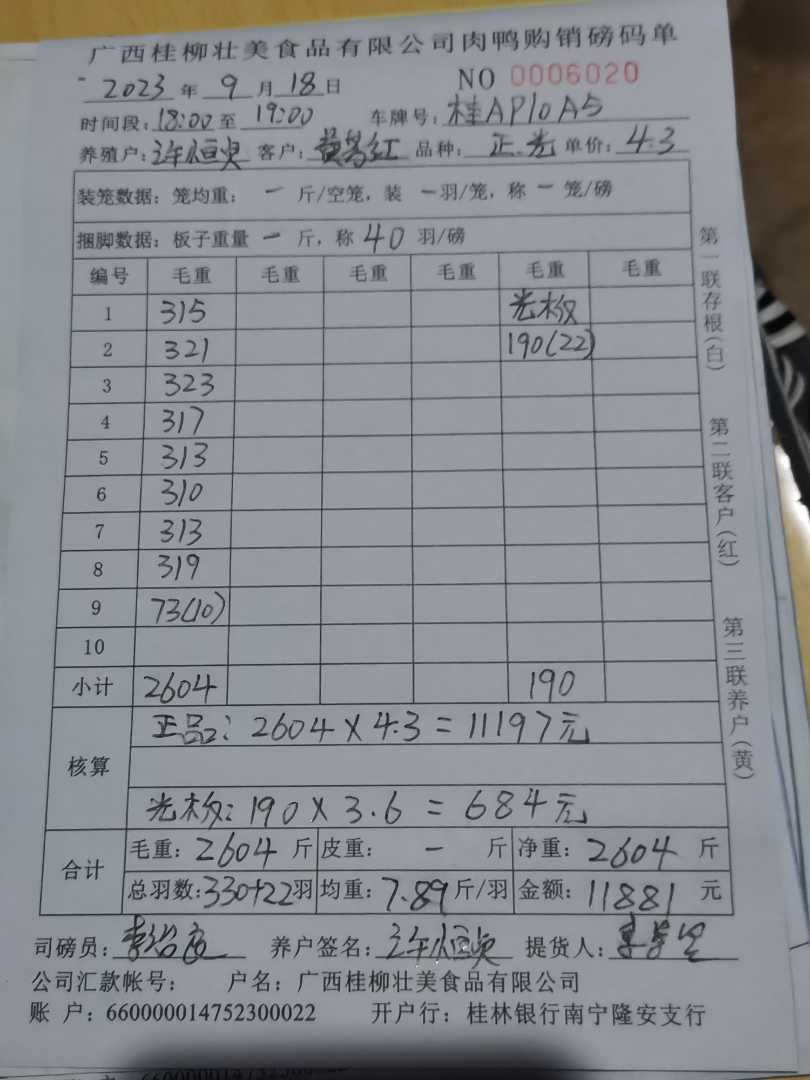 广西桂柳壮美食品有限公司肉鸭购销磅码单
2023年9月18日 NO 0006020
时间段:18:00至19:00 车牌号:桂AP10A5
养殖户: 客户:黄 红 品种:正.光 单价:4.3
装笼数据：笼均重： 一 斤/空笼，装 一羽/笼，称 一 笼/磅
捆脚数据：板子重量 一 斤，称 40 羽/磅
编号 毛重 毛重 毛重 毛重 毛重 毛重
1 315 光板
2 321 190(22)
3 323
4 317
5 313
6 310
7 313
8 319
9 73(10)
10
小计 2604 190
核算
正品: 2604×4.3=11197元
光板:190×3.6=684元
合计
毛重：2604斤 皮重： 一 斤 净重：2604 斤
总羽数:330+22羽 均重：7.89斤/羽 金额：11881 元
司磅员: 养户签名: 提货人:
公司汇款帐号： 户名：广西桂柳壮美食品有限公司
账 户：660000014752300022 开户行：桂林银行南宁隆安支行
第一联存根(白)
第二联客户(红)
第三联养户(黄)
660000014752300022